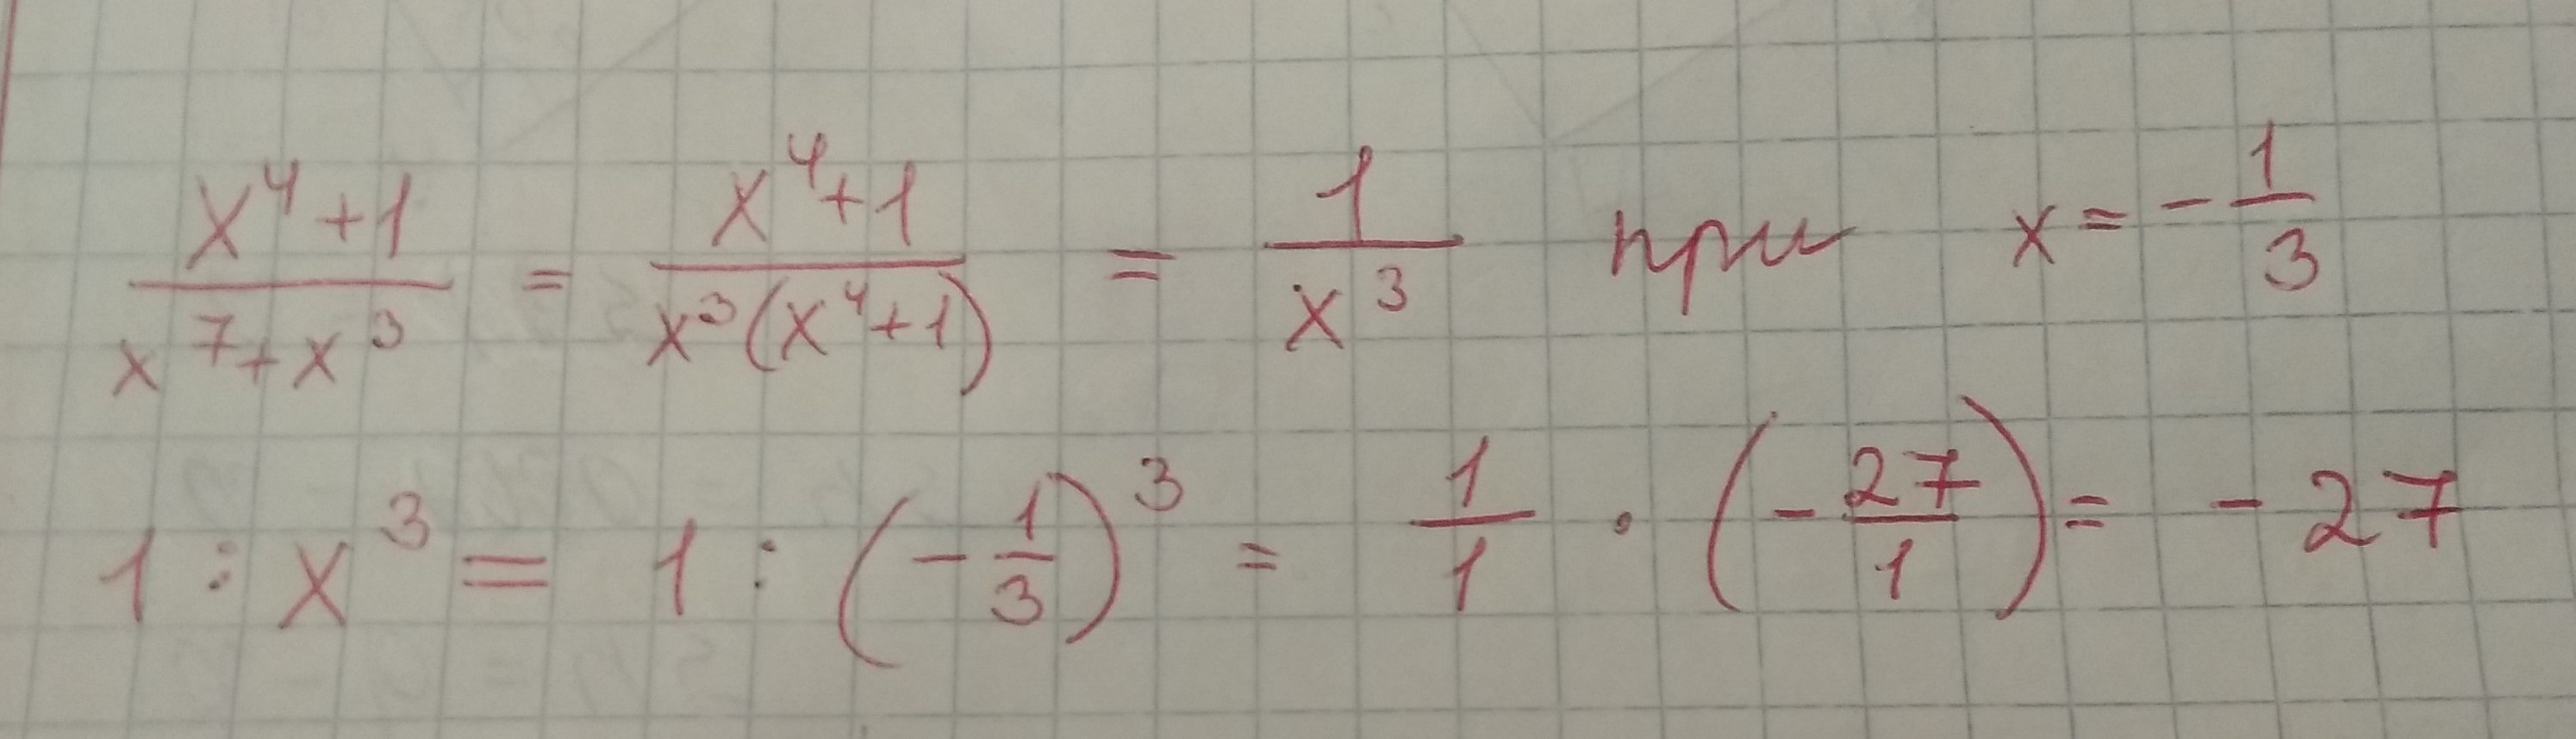 x⁴+1/x⁷+x³ = x⁴+1/x³(x⁴+1) = 1/x³ при x = -1/3
1 : x³ = 1 : (-1/3)³ = 1/1 · (-27/1) = -27